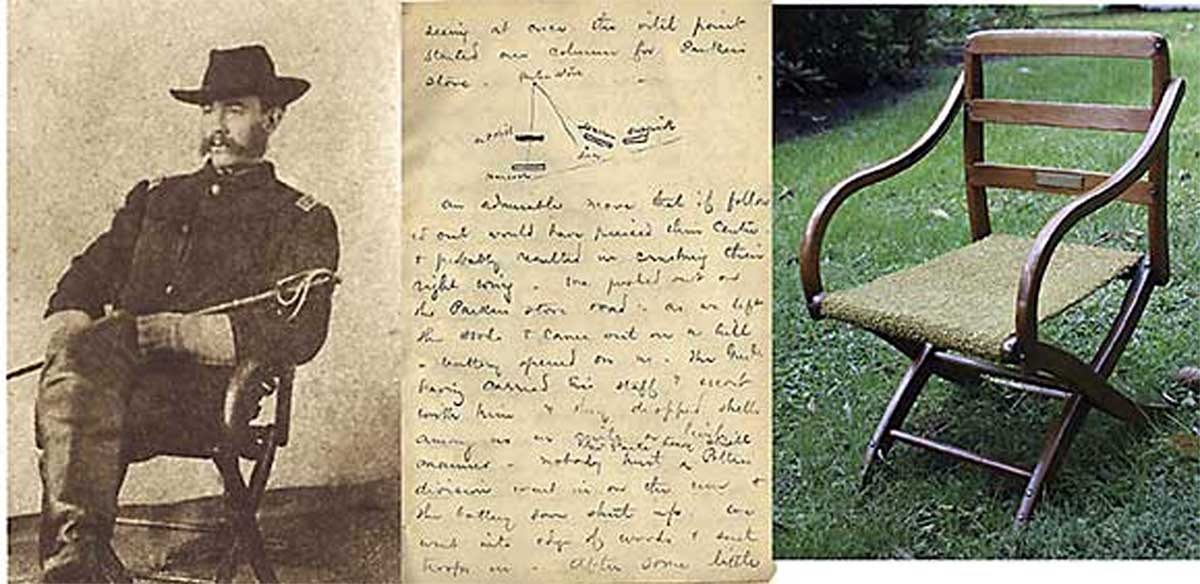 seeing at once the vital point
started our column for Parkers
store.
Parkers store
an admirable move that if follow
ed out would have pierced their Centre
& probably resulted in crushing their
right wing. We pushed out on
the Parkers store road. as we left
the woods & came out on a hill
a battery opened on us. Hancock
having carried his staff & escort
with him & they dropped shells
among us in
manner. nobody hurt a Potter
division went in on the run &
the battery soon shut up. We
went into edge of woods & sent
troops in. After some little